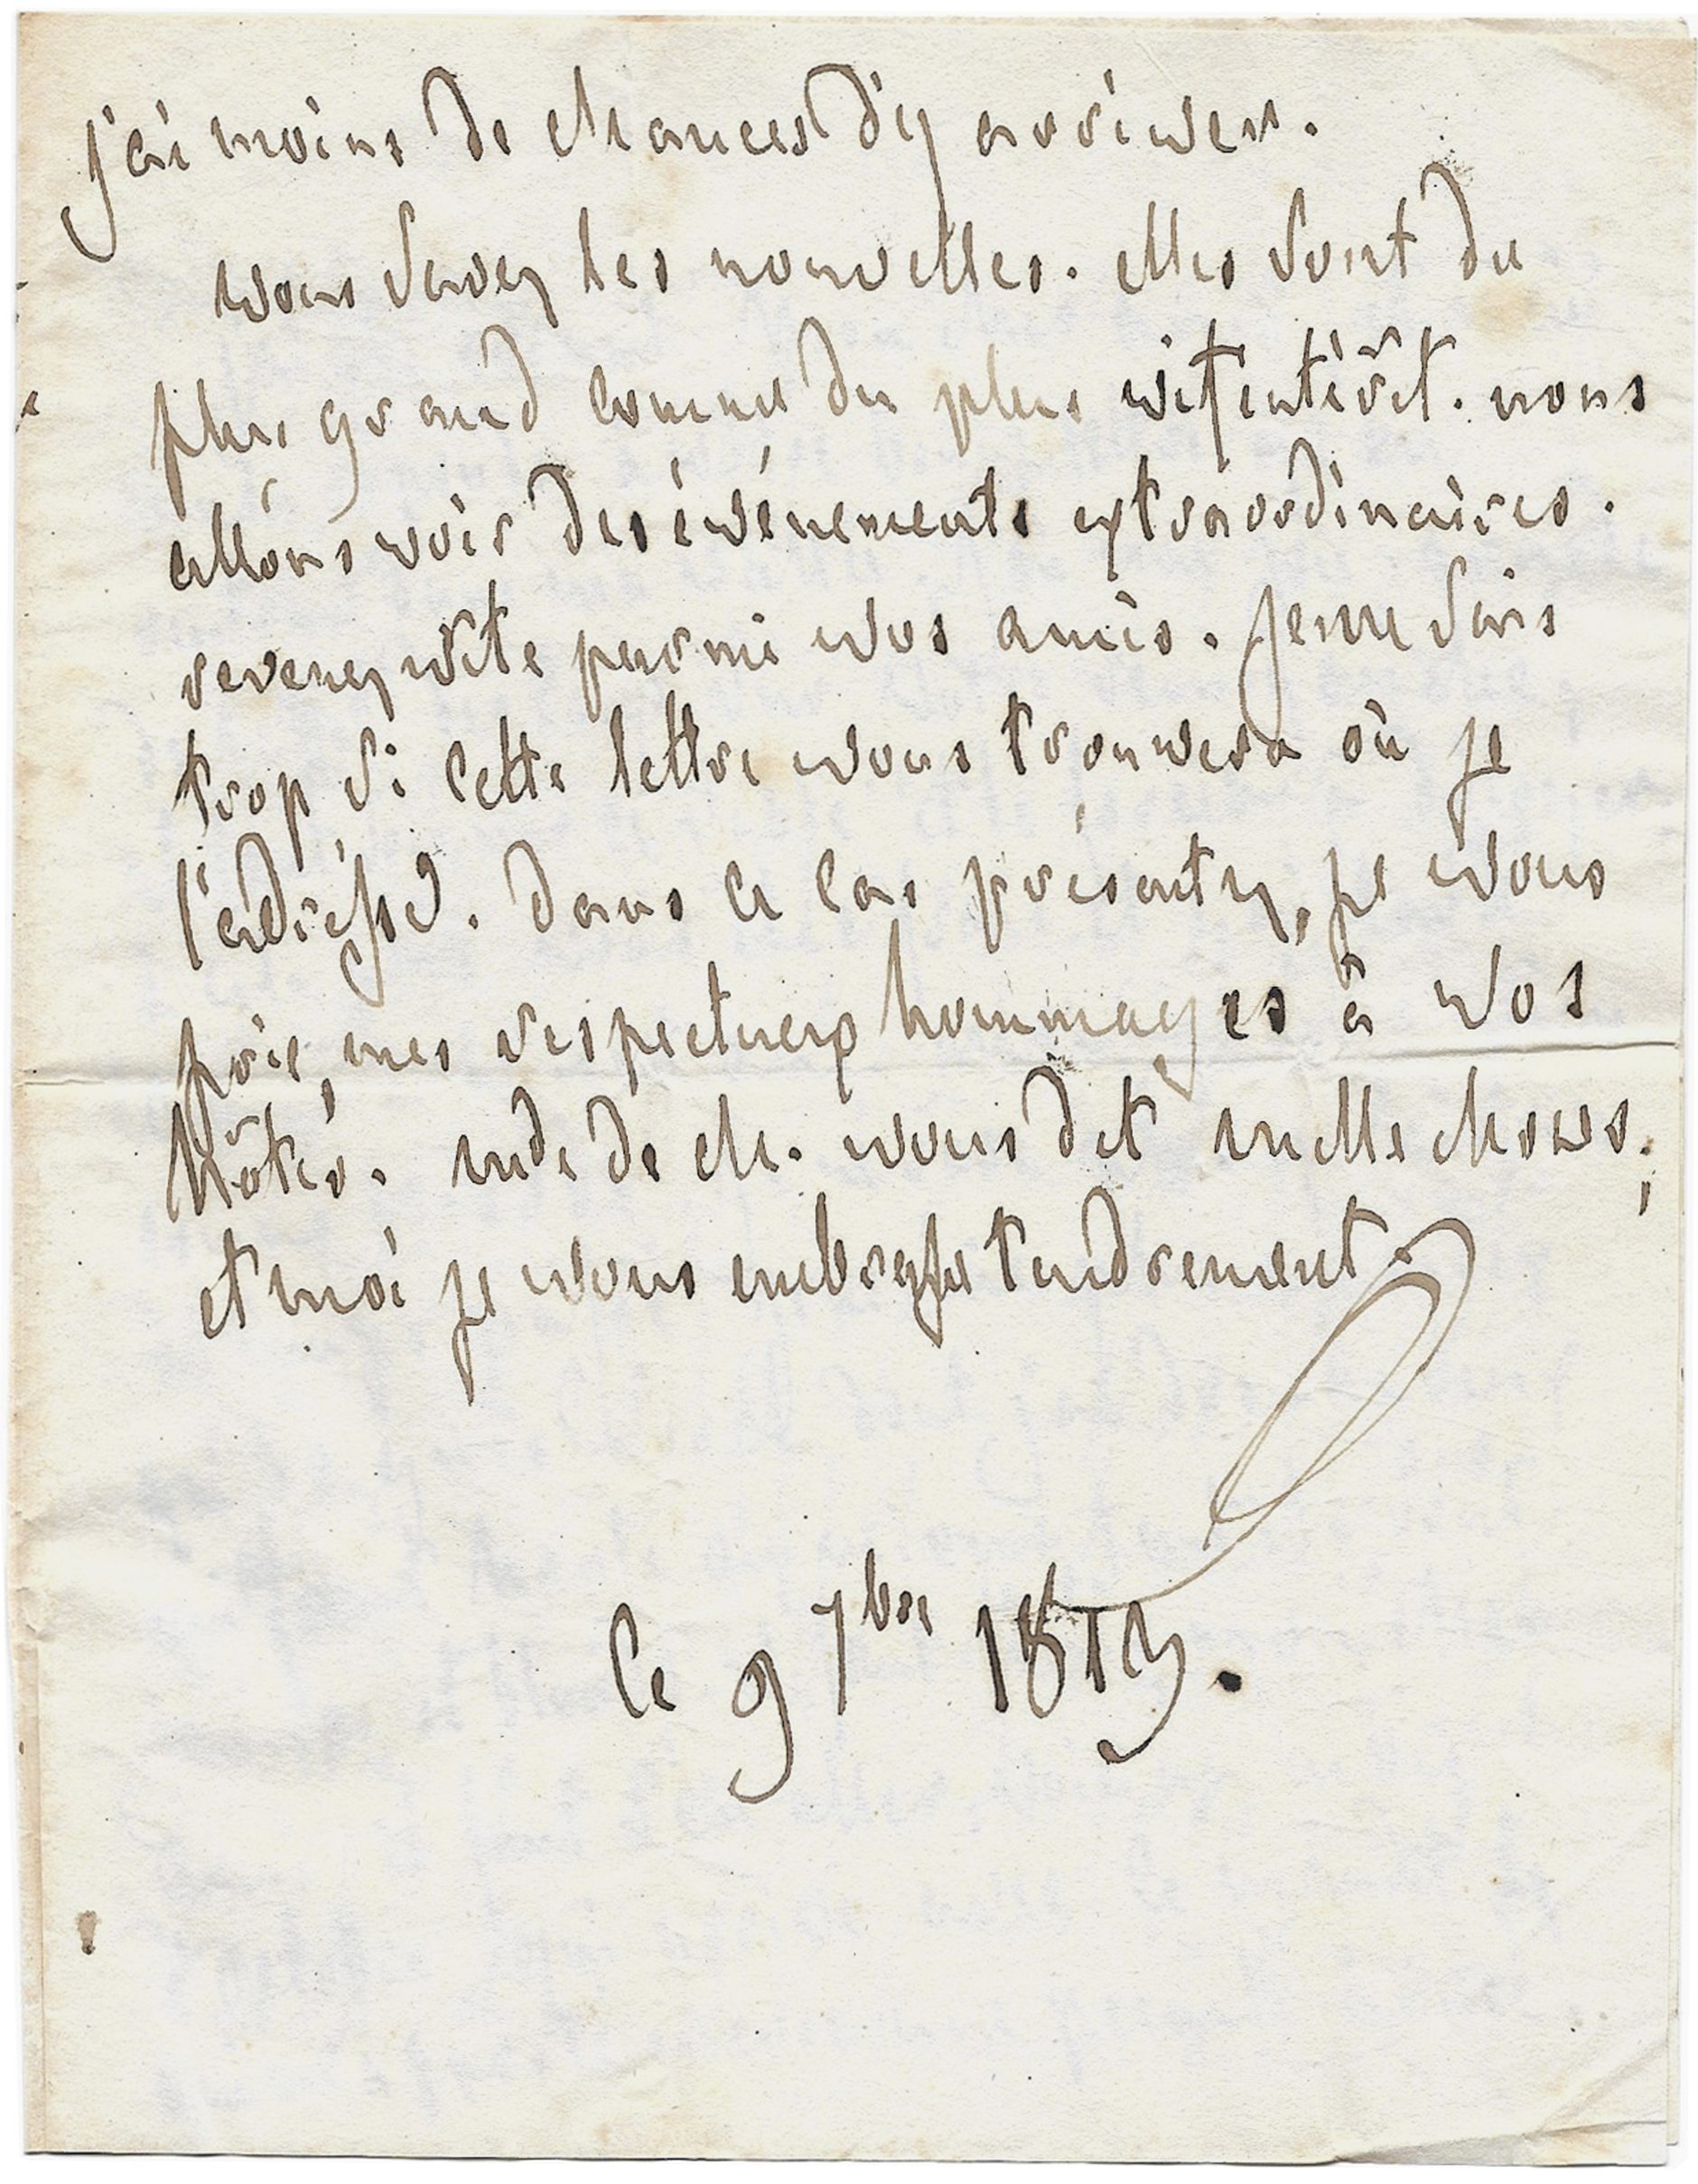 j'ai moins de chances d'y arriver.
vous savez les nouvelles. elles sont du
plus grand comme du plus vif intérêt. nous
allons voir des événements extraordinaires.
revenez vite parmi vos amis. je ne sais
trop si cette lettre vous trouvera où je
l'adresse. dans ce cas présentez, je vous
prie, mes respectueux hommages à vos
hôtes. mde de Ch. vous dit mille choses;
et moi je vous embrasse tendrement.
Ce 9 7bre 1813.